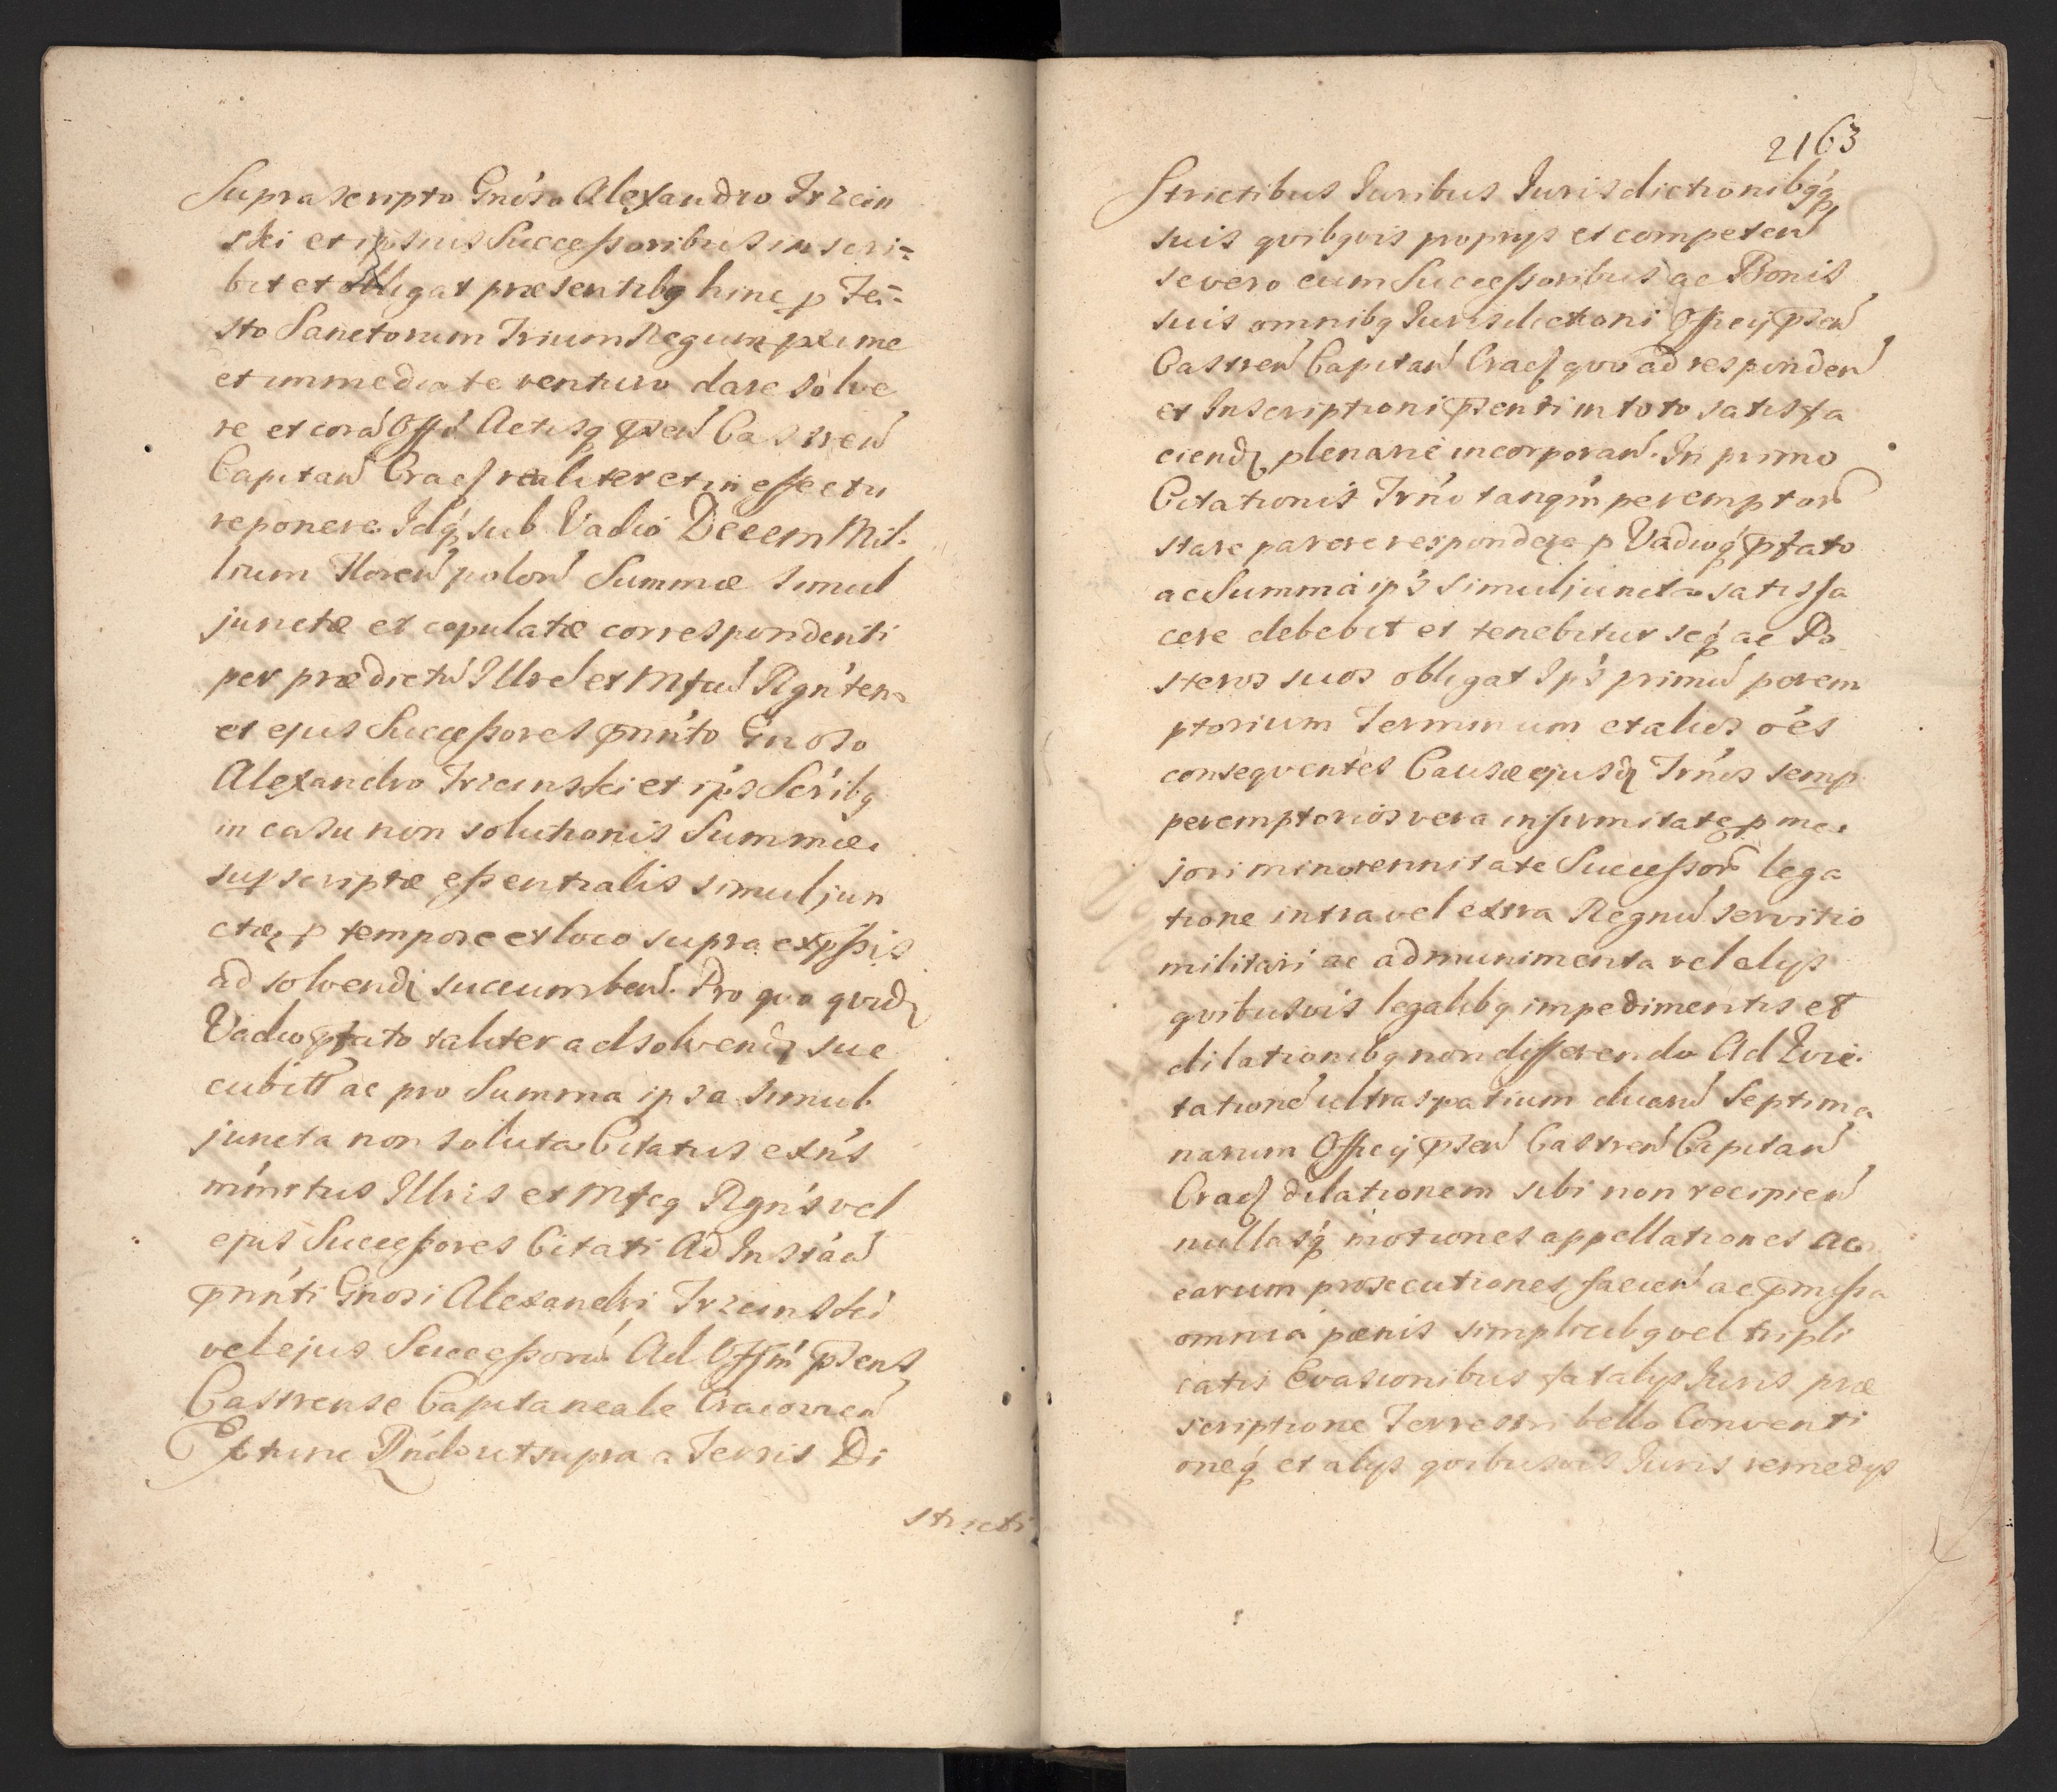 Suprascripto Gnóso Alexandro Trzcin
ski et ipsius Successoribus inscri=
bit et obligat præsentibq hinc p Fe=
sto Sanctorum Trium Regum pxime
et immediate venturo dare solve
re et corá Offó Actisq pñsen Castren
Capitan Crac realiter et in effectu
reponere. Idq sub Vadio Decem Mil.
lium Floren polon Summæ simul
junctæ et copulatæ correspondenti
per prædictú Illré et Mfcú Rgnten
et ejus Successores pnnto Gnoso
Alexandro Trzcinski et ips Scribq
in casu non solutionis Summæ
supscriptæ essentialis simul jun
ctæ p tempore et loco supra expssis
ad solvend succumben. Pro quo quid
Vadio pfato taliter ad solvend suc
cubitt ac pro Summa ipsa simul
juncta non soluta Citatus exns
minrtus Illris et Mfcq Rgns vel
ejus Successores Citati Ad Instan
pnnti Gnosi Alexandri Trzcinski
vel ejus Successorú Ad Offm psens
Castrense Capitaneale Cracovien
Extunc Rndo ut supra a Terris Di
stricti
2163
Strictibus Iuribus Iurisdictionibqq
suis quibqvis proprys et competen
se vero cum Successoribus ac Bonis
suis omnibq Iurisdictioni Officy psen
Castren Capitan Crac quo ad responden
et Inscriptioni psenti in toto satisfa
ciend plenarie incorporan. In primo
Citationis Trno tanqm peremptor
stare parere respondere p Vadioq pfato
ac Summa ips simul juncta satisfa
cere debebit et tenebitur seq ac Po
steros suos obligat Ips primú perem
ptorium Terminum et alios oes
consequentes Causæ ejusd Trnos semp
peremptorios vera infirmitate p ma
jori minorennitate Successor lega
tione intra vel extra Regnú servitio
militari ac ad munimenta vel alys
quibusvis legalibq impedimentis et
dilationibq non differendo Ad Evic
tatione ultra spatium duarú Septima
narum Officy psen Castren Capitan
Crac dilationem sibi non recipien
nullasq motiones appellationes ac
earum prosecutiones facien ac pmissa
omnia pænis simplicibq vel tripli
catis Evasionibus fatalys Iuris præ
scriptione Terrestri bello Conventi
oneq et alys quibusvis Iuris remedys